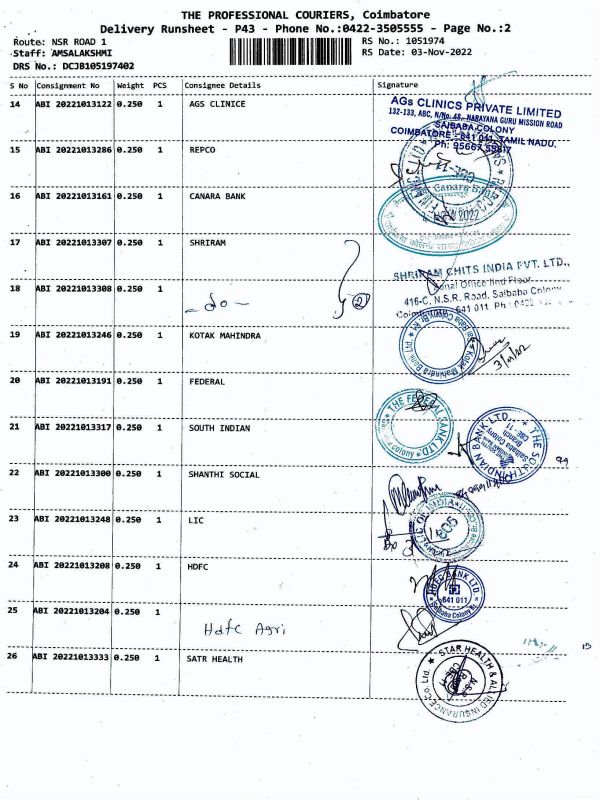 THE PROFESSIONAL COURIERS, Coimbatore
Delivery Runsheet - P43 - Phone No.:0422-3505555 - Page No.:2
Route: NSR ROAD 1
RS No.: 1051974
Staff: AMSALAKSHMI
RS Date: 03-Nov-2022
DRS No.: DCJB105197402
S No Consignment No Weight PCS Consignee Details Signature
14 ABI 20221013122 0.250 1 AGS CLINICE
AGs CLINICS PRIVATE LIMITED
132-133, ABC, N/No. 48, NARAYANA GURU MISSION ROAD
SAIBABA COLONY
COIMBATORE - 641 011, TAMIL NADU.
15 ABI 20221013286 0.250 1 REPCO
16 ABI 20221013161 0.250 1 CANARA BANK
Canara
2022
17 ABI 20221013307 0.250 1 SHRIRAM
SHRIRAM CHITS INDIA PVT. LTD.,
18 ABI 20221013308 0.250 1 - do - 2
416-C, N.S.R. Road, Saibaba Colony
641 011
19 ABI 20221013246 0.250 1 KOTAK MAHINDRA
20 ABI 20221013191 0.250 1 FEDERAL
THE FEDERAL BANK LTD
21 ABI 20221013317 0.250 1 SOUTH INDIAN
THE SOUTH INDIAN BANK LTD.
Saibaba Colony
Branch
CBE - 11
22 ABI 20221013300 0.250 1 SHANTHI SOCIAL
23 ABI 20221013248 0.250 1 LIC
24 ABI 20221013208 0.250 1 HDFC
HDFC BANK LTD.
641 011
Saibaba Colony
25 ABI 20221013204 0.250 1 Hdfc Agri
26 ABI 20221013333 0.250 1 SATR HEALTH
STAR HEALTH & ALLIED INSURANCE Co. Ltd.